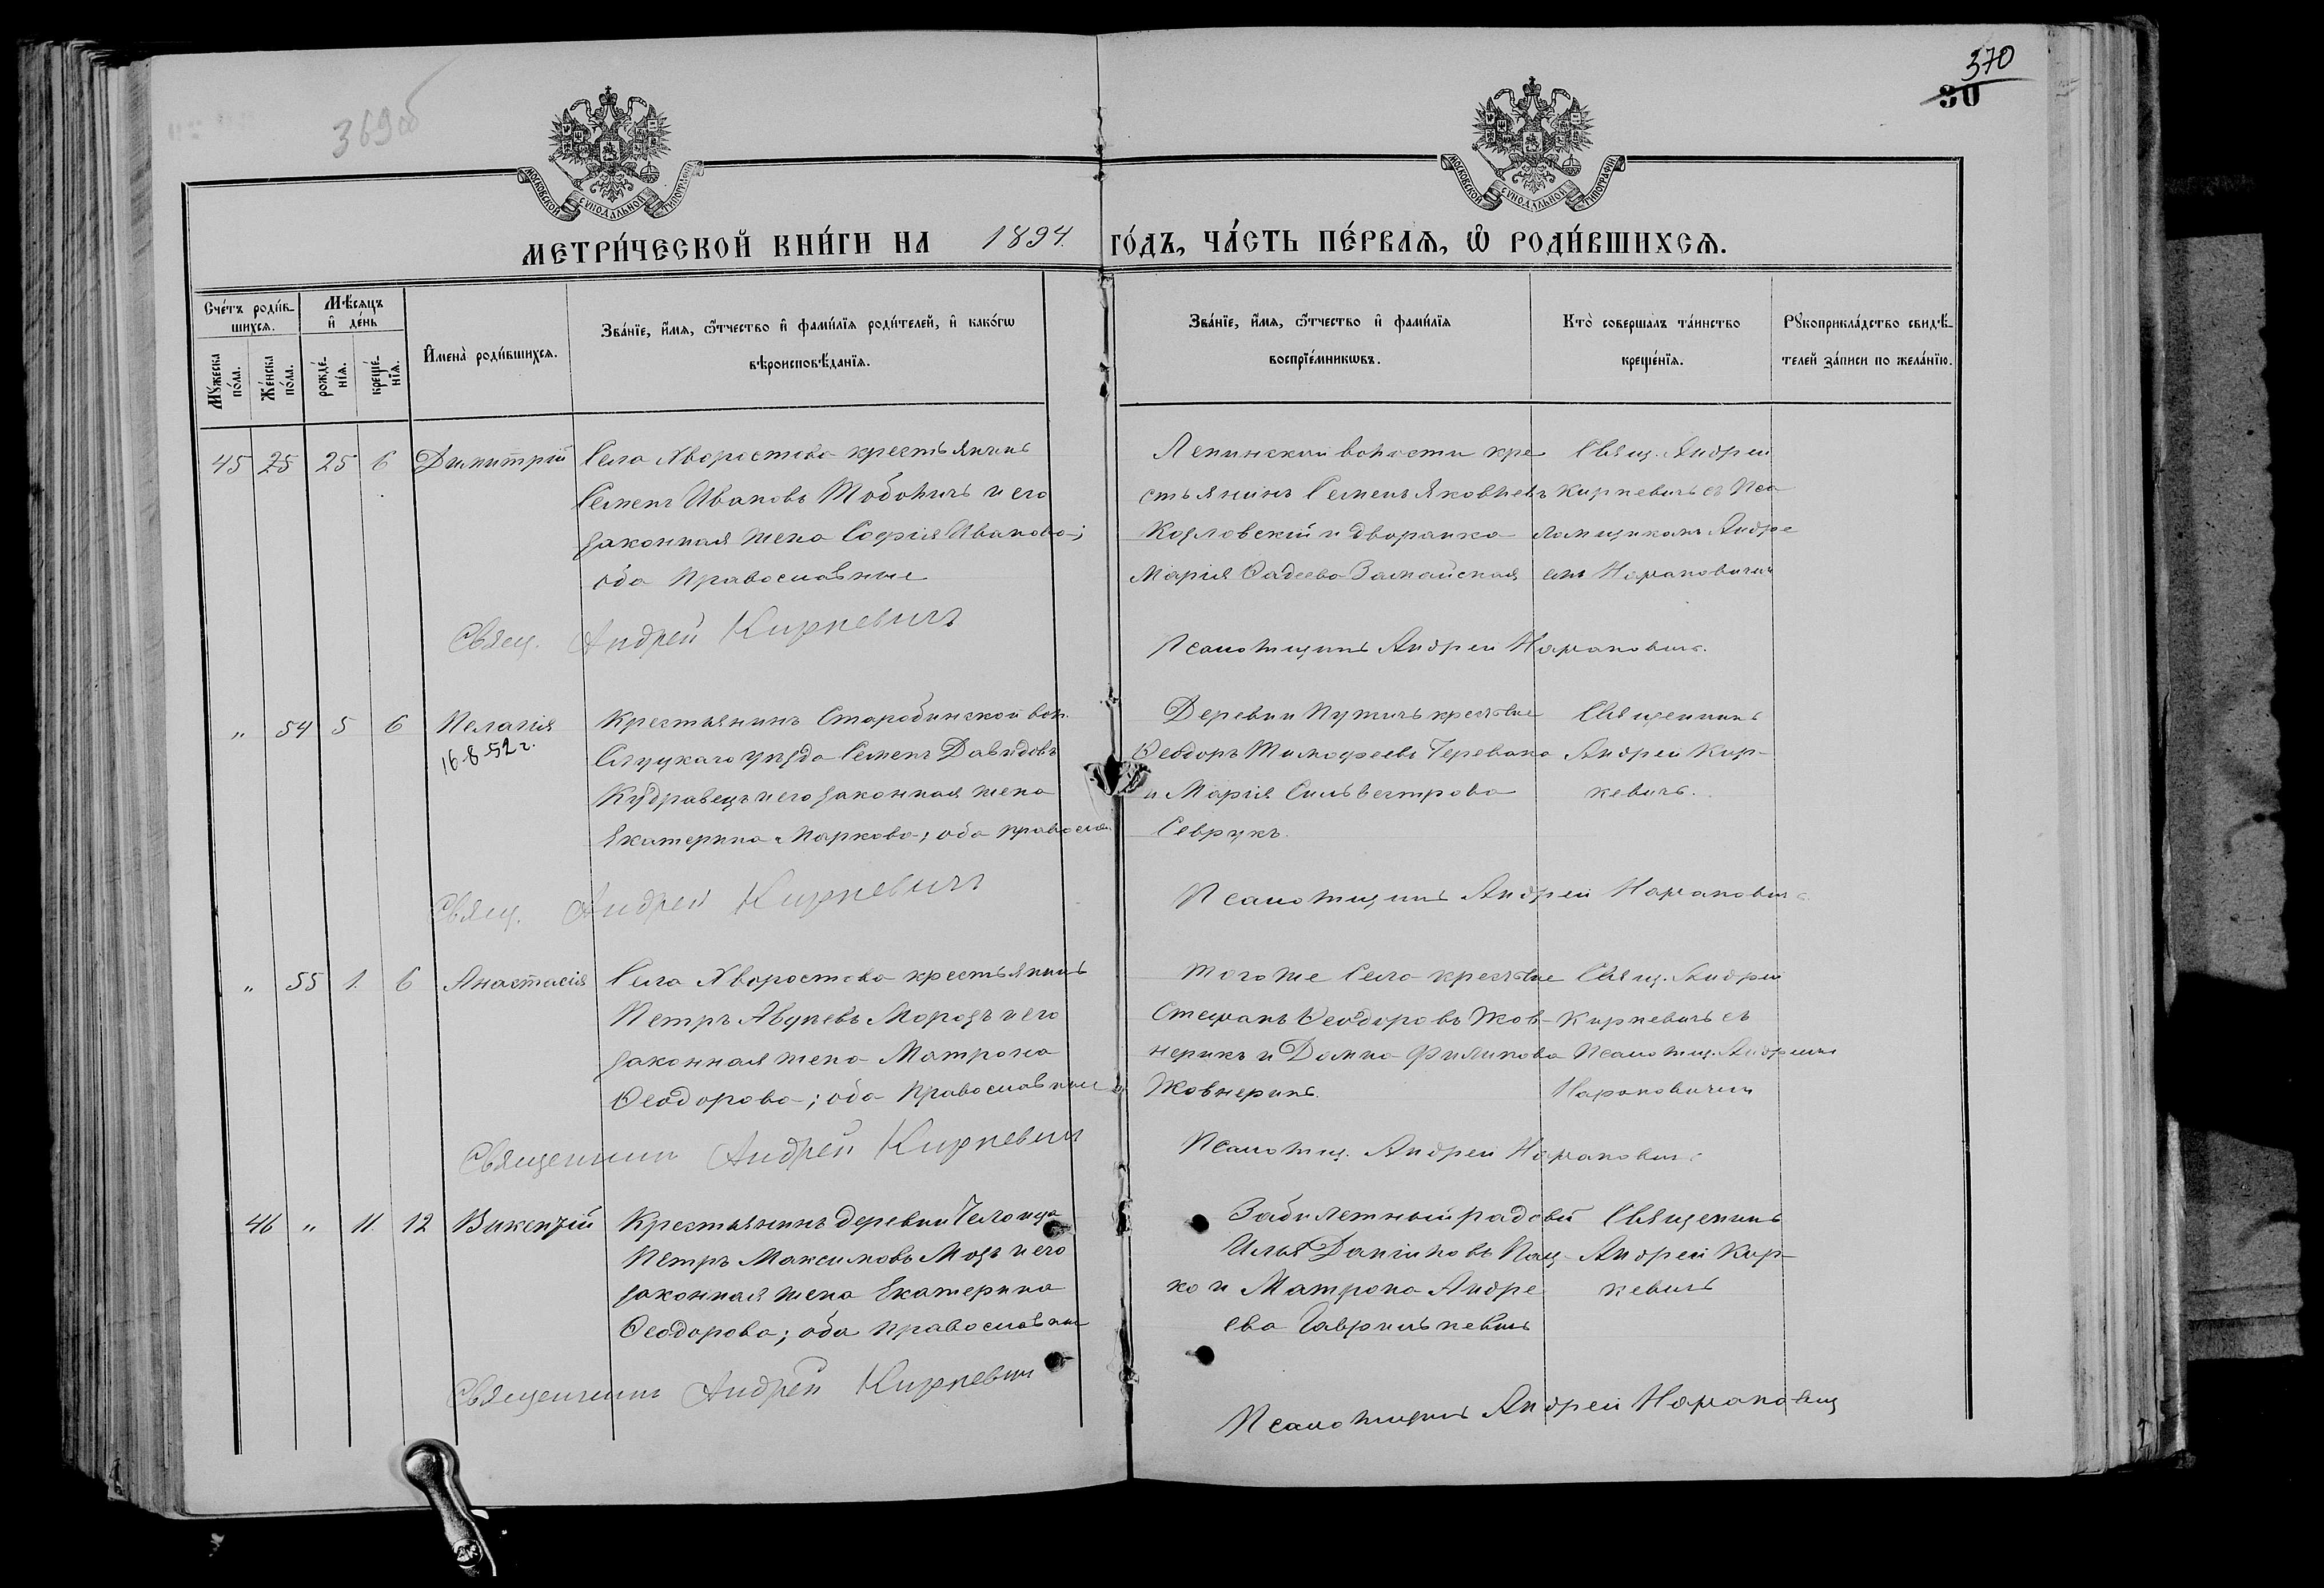 369об
370
30
МОСКОВСКОЙ СѴНОДАЛЬНОЙ ТИПОГРАФІИ
МОСКОВСКОЙ СѴНОДАЛЬНОЙ ТИПОГРАФІИ
МЕТРИ́ЧЕСКОЙ КНИ́ГИ НА 1894. ГО́ДЪ, ЧА́СТЬ ПЕ́РВАѦ, Ѽ РОДИ́ВШИХСѦ.
Сче́тъ роди́в-
шихсѧ.
Мѣ́сѧцъ
и҆ де́нь
Мꙋ́жеска по́ла.
Же́нска по́ла.
рожде́-нїѧ.
креще́-нїѧ.
И҆мена̀ роди́вшихсѧ.
Зва́нїе, и҆́мѧ, ѻ҆́тчество и҆ фами́лїѧ роди́телей, и҆ како́гѡ
вѣроисповѣ́данїѧ.
Зва́нїе, и҆́мѧ, ѻ҆́тчество и҆ фами́лїѧ
воспрїе́мникѡвъ.
Кто̀ соверша́лъ та́инство
креще́нїѧ.
Рꙋкоприкла́дство свидѣ́-
телей за́писи по жела́нїю.
45 25 25 6 Димитрій
Села Хворостова крестьянинъ
Семенъ Ивановъ Тоболичъ и его
законная жена Софія Иванова;
оба православные
Ленинской волости кре
стьянинъ Семенъ Яковлевъ
Козловскій и дворянка
Марія Фадеева Замайская
Свящ. Андрей
Киркевичъ съ Пса
ломщикомъ Андре
емъ Нараковичемъ
Свящ. Андрей Киркевичъ
Псаломщикъ Андрей Нараковичъ.
" 54 5 6 Пелагія
16-8-52 г.
Крестьянинъ Старобинской вол.
Слуцкаго уѣзда Семенъ Давидовъ
Кудравецъ и его законная жена
Екатерина Маркова; оба правосла
Деревни Пузичъ крестьяне
Ѳеодоръ Тимофеевъ Черевако
и Марія Сильвестрова
Севрукъ.
Священникъ
Андрей Кир-
кевичъ.
Свящ. Андрей Киркевичъ
Псаломщикъ Андрей Нараковичъ
" 55 1. 6 Анастасія
Села Хворостова крестьянинъ
Петръ Морозъ и его
законная жена Матрона
Ѳеодорова; оба православные
Того же Села крестьяне
Стефанъ Ѳеодоровъ Жов-
нерикъ и Домна Филипова
Жовнерикъ.
Свящ. Андрей
Киркевичъ съ
Псаломщ. Андреемъ
Нараковичемъ
Священникъ Андрей Киркевичъ
Псаломщ. Андрей Нараковичъ
46 " 11. 12 Викентій
Крестьянинъ деревни Челонца
Петръ Максимовъ Мозъ и его
законная жена Екатерина
Ѳеодорова; оба православные
Забилетный рядовой
Илья Даниловъ Пац-
ко и Матрона Андре
ева Гаврилькевичъ
Священникъ
Андрей Кир-
кевичъ
Священникъ Андрей Киркевичъ
Псаломщикъ Андрей Нараковичъ